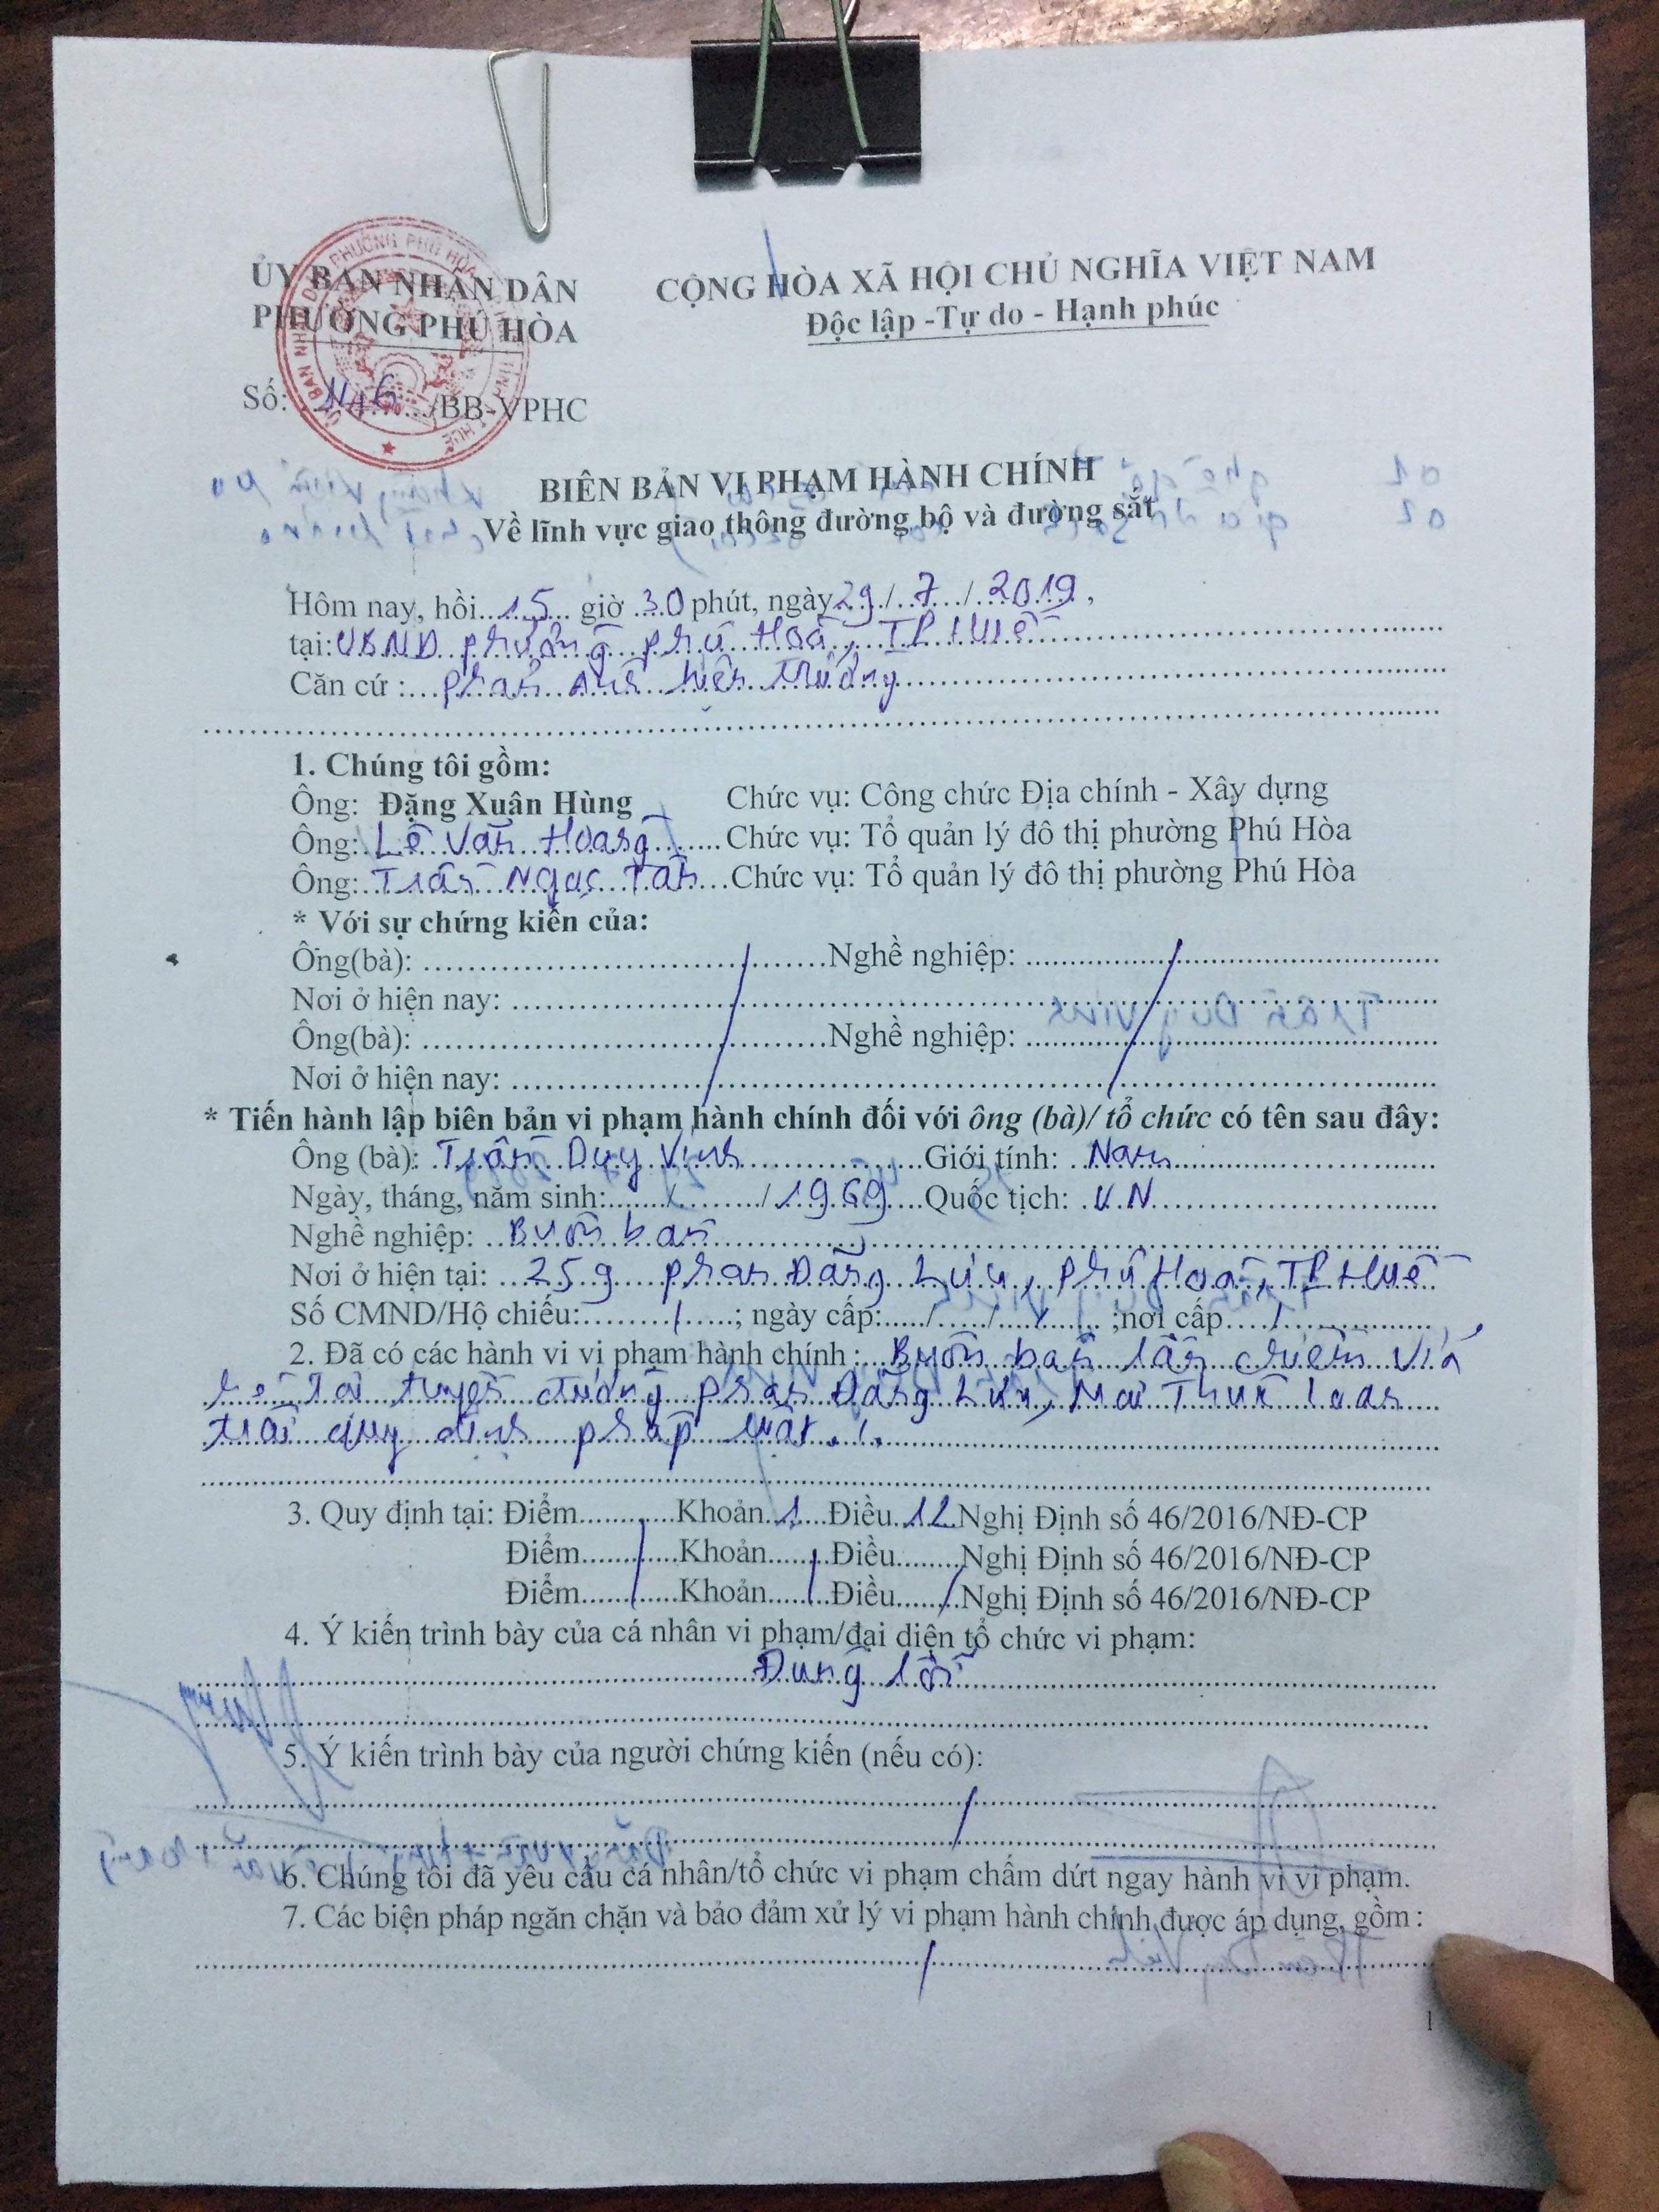 ỦY BAN NHÂN DÂN
PHƯỜNG PHÚ HÒA
CỘNG HÒA XÃ HỘI CHỦ NGHĨA VIỆT NAM
Độc lập -Tự do - Hạnh phúc
Số: 146/BB-VPHC
BIÊN BẢN VI PHẠM HÀNH CHÍNH
Về lĩnh vực giao thông đường bộ và đường sắt
Hôm nay, hồi..15.... giờ ..30 phút, ngày 29./..7.../..2019.,
tại: UBND phường phú Hoà, TP Huế
Căn cứ :... phản ánh hiện trường
1. Chúng tôi gồm:
Ông: Đặng Xuân Hùng Chức vụ: Công chức Địa chính - Xây dựng
Ông: Lê Văn Hoang Chức vụ: Tổ quản lý đô thị phường Phú Hòa
Ông: Trần Ngọc Tân Chức vụ: Tổ quản lý đô thị phường Phú Hòa
* Với sự chứng kiến của:
Ông(bà): ........ Nghề nghiệp: ........
Nơi ở hiện nay: ........
Ông(bà): ........ Nghề nghiệp: ........
Nơi ở hiện nay: ........
* Tiến hành lập biên bản vi phạm hành chính đối với ông (bà)/ tổ chức có tên sau đây:
Ông (bà): Trần Duy Vinh Giới tính: Nam
Ngày, tháng, năm sinh:....../......../1969 Quốc tịch: V.N
Nghề nghiệp: Buôn bán
Nơi ở hiện tại: 259 phan Đăng Lưu, phú Hoà, TP Huế
Số CMND/Hộ chiếu:......../.....; ngày cấp:...../...../........ ;nơi cấp..../........
2. Đã có các hành vi vi phạm hành chính : Buôn bán lấn chiếm vỉa
hè tại tuyến đường phan Đăng Lưu, Mai Thúc Loan
trái quy định pháp luật ./.
3. Quy định tại: Điểm............Khoản..1....Điều..12 Nghị Định số 46/2016/NĐ-CP
Điểm............Khoản........Điều........Nghị Định số 46/2016/NĐ-CP
Điểm............Khoản........Điều........Nghị Định số 46/2016/NĐ-CP
4. Ý kiến trình bày của cá nhân vi phạm/đại diện tổ chức vi phạm:
Đúng lỗi
5. Ý kiến trình bày của người chứng kiến (nếu có):
6. Chúng tôi đã yêu cầu cá nhân/tổ chức vi phạm chấm dứt ngay hành vi vi phạm.
7. Các biện pháp ngăn chặn và bảo đảm xử lý vi phạm hành chính được áp dụng, gồm :
1